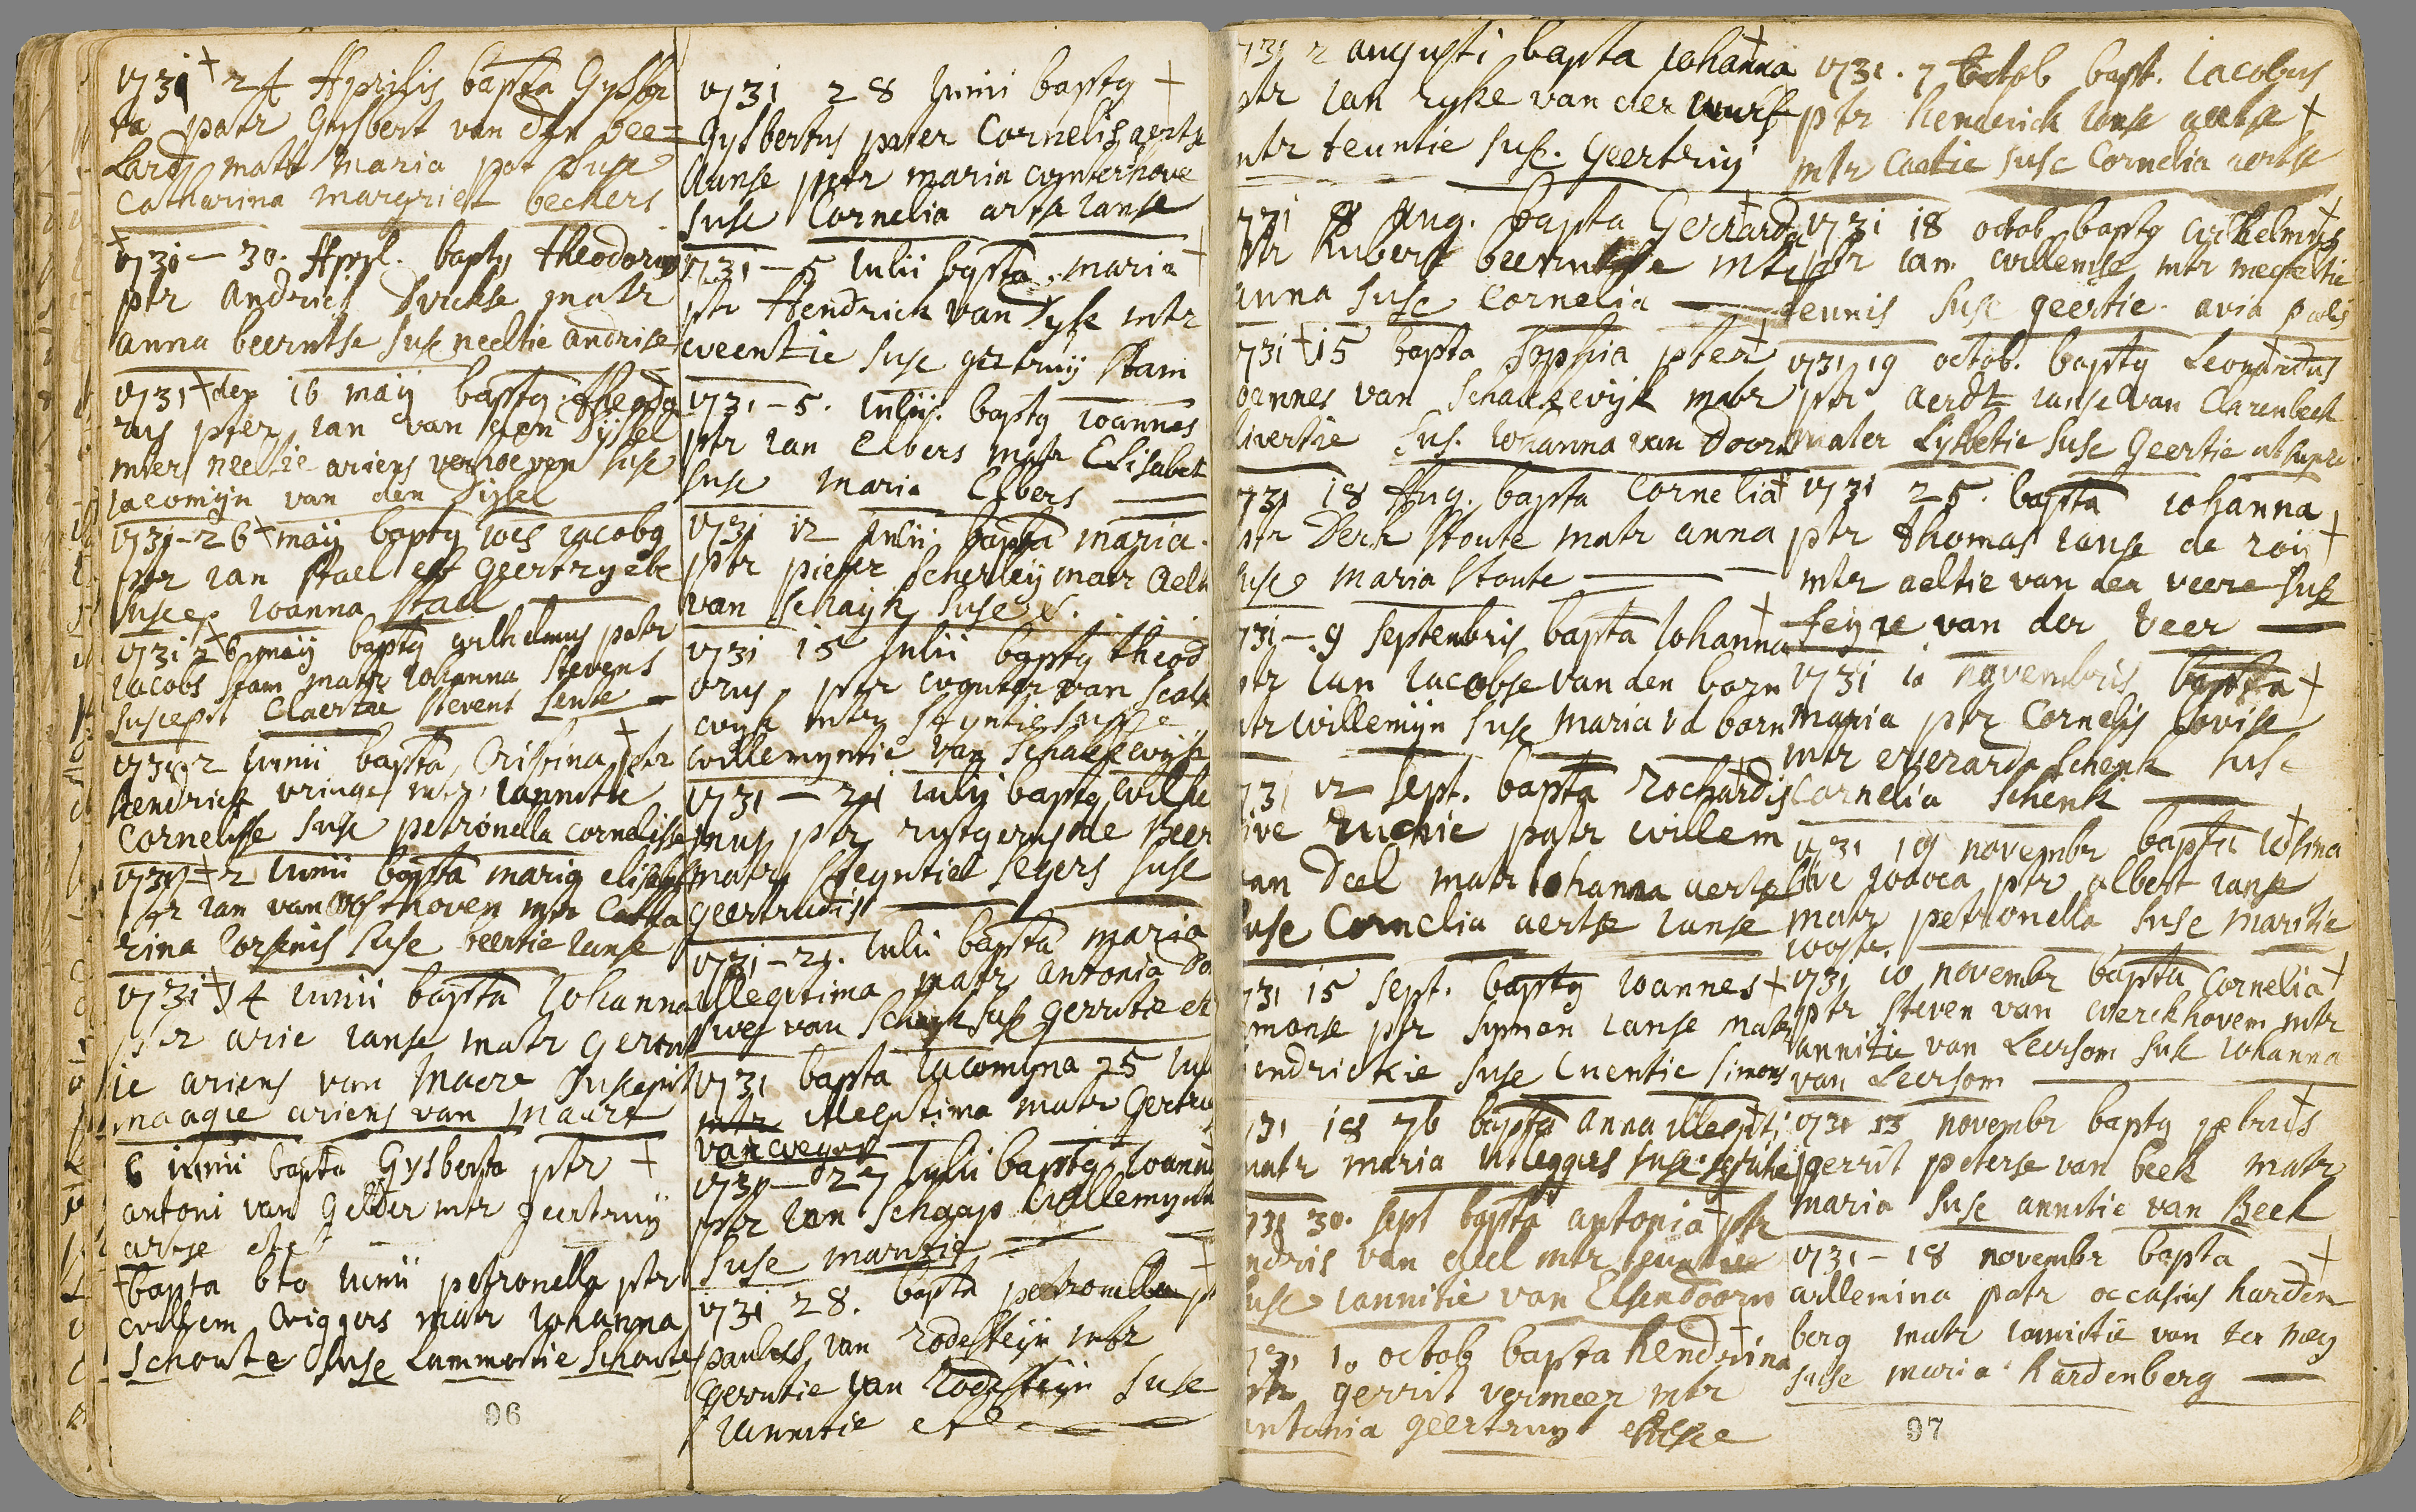 1731 + 24 Aprilis bapta Gysber
ta patr Gysbert van den bee=
Lard matr maria pot Suse
Catharina margriet beckers
+1731 — 30. Appl. baptq theodorus
ptr andries Dirckse matr
anna beerntse suse neeltie andrise
1731 + den 16 maij baptq. theodo
rus pter ian van den Dijssel
mter neeltie ariens verhoeven suse
iacomijn van den Dijssel
1731-26 + maij baptq ioes iacobq
ptr ian stael et geertry ebe
suscep ioanna stael
1731 26 maij baptq wilhelmus patr
iacobs stam matr iohanna stevens
suscepit Claertie stevens sense —
1731 2 iunii bapta Crispina ptr +
hendrick vringe mtr iannitie
Cornelisse suse petronella cornelisse
1731 + 2 iunii bapta maria elisabet
ptr ian van oosthoven mtr Catha
rina iorsenis suse beertie ianse
1731 + 14 iunii bapta iohanna
ptr arie ianse matr gertru
ie ariens van maere suscepit
maagie ariens van maure
6 iunii bapta Gysberta ptr +
antoni van gelder mtr geertruy
artse etc
+ bapta 6to iunii petronella ptr
willem wiggers matr iohanna
schoute suse Lammertie schoute
96
1731 28 iunii baptq +
Gysbertus pater Cornelis aertse
ianse mtr maria wynterhove
suse Cornelia arta ianse
1731 — 5 iulii bapta. maria +
ptr Hendrick van Dyke mtr
weentie suse geetruij stam
1731 — 5. iulii. baptq ioannes
ptr ian Elbers matr Elisabet
suse maria Elbers —
1731 12 iulii bapta maria.
ptr pieter scherley matr aelt
van schayk suse &.
1731 15 iulii baptq theod
orus, ptr wouter van scalk
wyk mtr styntie suse
willemyntie van schalkewijk
1731 — 21 iulij baptq wilhe
mus ptr rutgerus de Beer
matr steyntiel segers suse
geertrudis —
1731 — 21. iulii bapta maria
illegitima matr antonia do
wes van schayk suse gerritie et
1731 bapta iacomyna 25 iu
mtr illegitima matr Gertru
van wegen
1731 — 27 iulii baptq ioann
ptr ian schaap willemynt
suse maritie —
1731 28. bapta petronella pt +
paulus van Rodesteijn mtr
gerritie van Rodesteijn suse
iannitie etc —
731 2 augusti bapta iohanna +
ptr ian ryke van der wurf
mtr teuntie suse. Geertruy
1731 8 Aug. bapta Gerrarda +
ptr Hubert beerntse mtr
anna suse Cornelia —
1731 + 15 bapta Sophia pter +
ioannes van schalkewijk matr
divertie sus. iohanna van Doorn
1731 18 Aug. bapta Cornelia +
ptr Derk stoute matr anna
suse maria stoute —
1731 — 9 septembris bapta iohanna +
ptr ian iacobse van den born
mtr willemijn suse maria vd born
1731 12 sept. bapta Rochardis +
sive Ruchie patr willem
van Deel matr iohanna aertse
suse Cornelia aertse ianse
1731 15 sept. baptq ioannes +
simonse ptr symon ianse matr
hendrickie suse Cuentie simons
1731 18 7b bapta anna illegiti +
matr maria uleggers suse.
1731 30. sept bapta antonia + ptr
andris van geel mtr teuntie
suse iannitie van Elsendoorn
1731 10 octob bapta hendrina +
ptr gerrit vermeer mtr
antonia geertruy
1731. 7 octob bapt. iacobus
ptr henderick ianse aelse +
mtr Caetie suse Cornelia aertse
1731 18 octob baptq wilhelmus +
ptr ian willemse mtr megeltie
teunis suse geertie. aria pouls
1731 19 octob. baptq Leonardus +
ptr aerdt ianse van Clarenbeek
mater Lysbetie suse geertie ut supra
1731 25. bapta iohanna
ptr thomas ianse de roij +
mtr aeltie van der veere suse
feijge van der Veer —
1731 10 novembris bapta +
maria ptr Cornelis Covise
mtr everarda schenk suse
Cornelia schenk —
1731 19 novembr bapta iosina +
sive ptr albert ianse
matr petronella suse maritie
iooste
1731 10 novembr bapta Cornelia +
ptr steven van werckhovem mtr
annitie van Leersom suse iohanna
van Leersom —
1731 13 novembr baptq petrus +
gerrit peterse van beek matr
maria suse annitie van Beek
1731 — 18 novembr bapta +
willemina patr occasius harden
berg matr iannitie van ter meg
suse maria hardenberg —
97